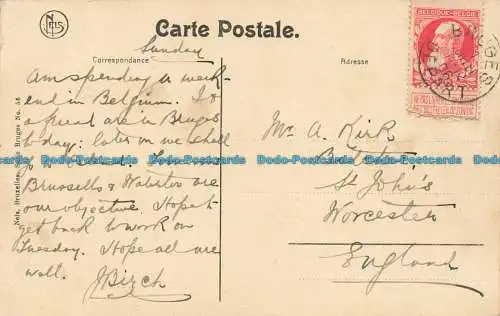 Carte Postale.
Correspondance
Adresse
Sunday
Am spending a week-
end in Belgium. I &
a friend are in Bruges
to-day: later on we shall
Brussels & Waterloo are
our objective. Hope to
get back to work on
Tuesday. Hope all are
well.
J Birch
Mr A. Kirk
St John's
Worcester
England
Nels, Bruxelles, Bruges No. 56
BELGIQUE-BELGIE
BRUGES
Dodo-Postcards Dodo-Postcards Dodo-Postcards Dodo-Postcards